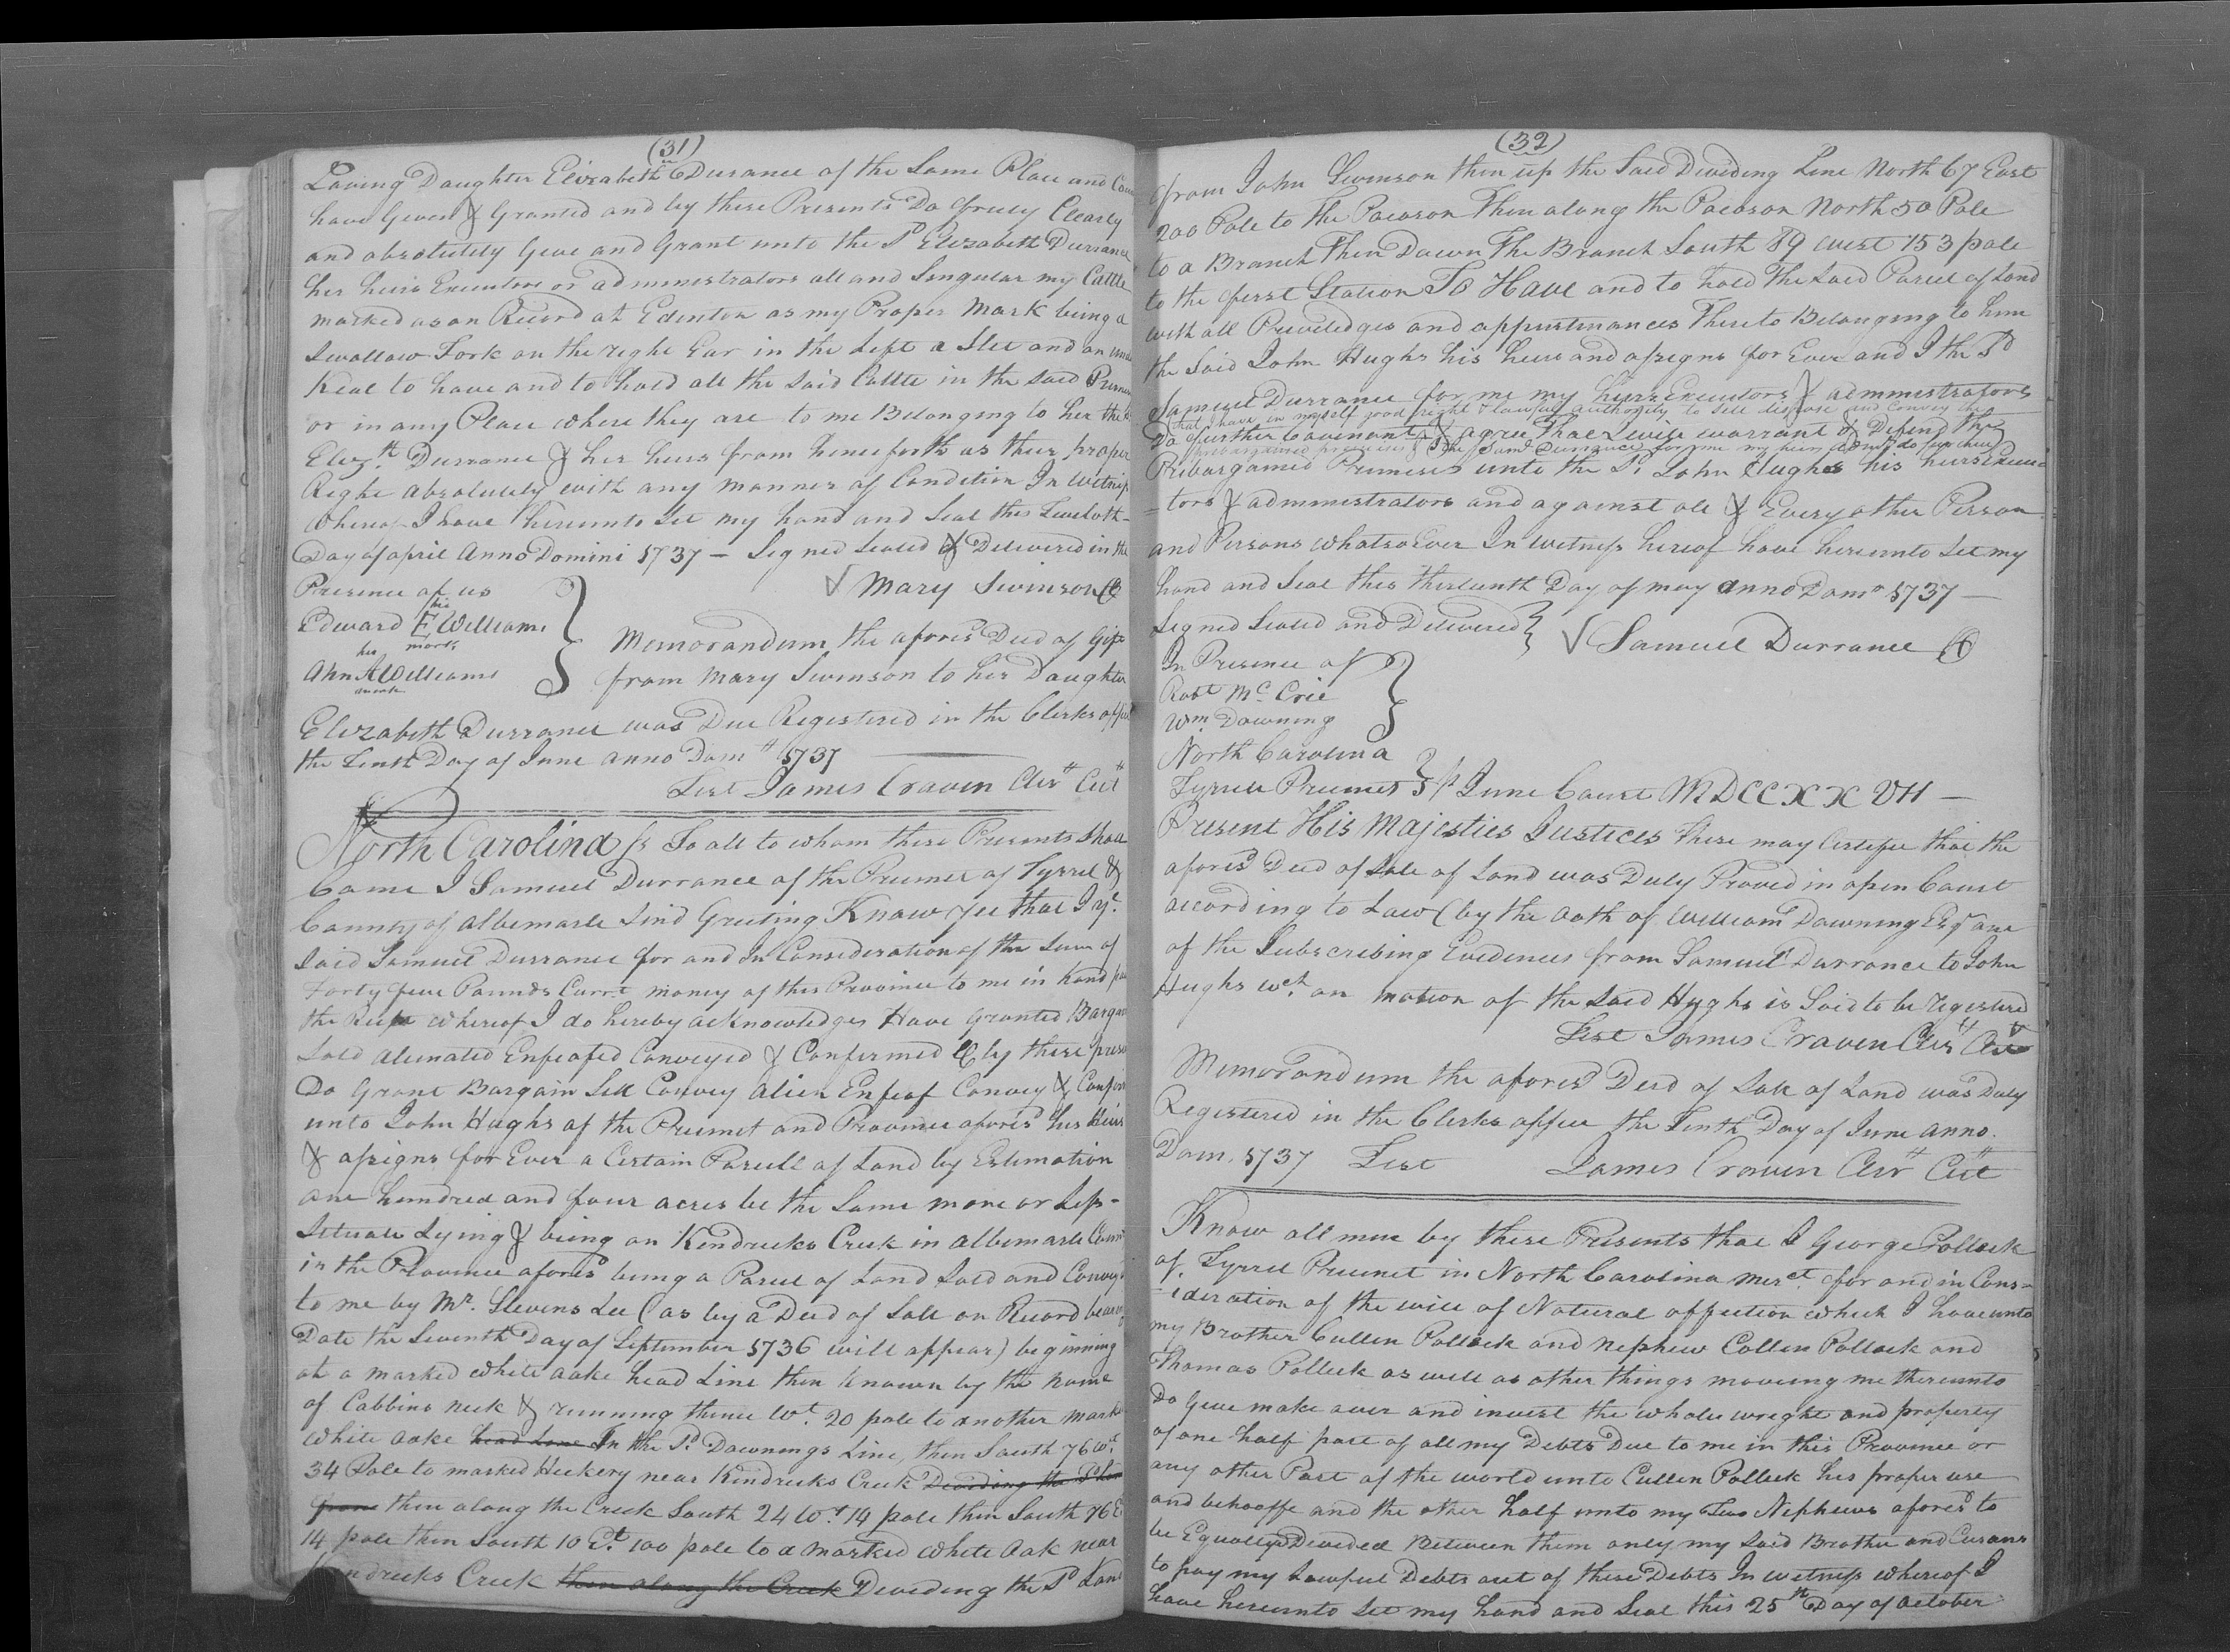 (31)
Loving Daughter Elizabeth Durrance of the Same Place and
have Given & Granted and by these Presents Do freely Clearly
and absolutely Give and Grant unto the Sd Elizabeth Durrance
her heirs Executors or administrators all and Singular my Cattle
marked as on Record at Edenton as my Proper Mark being a
Swallow Fork on the right Ear in the Left a Slit and an
Keal to have and to hold all the said Cattle in the said
or in any Place where they are to me Belonging to her the
Elizth Durrance & her heirs from henceforth as their proper
Right absolutely with any manner of Condition In Witness
Whereof I have hereunto Set my hand and Seal this Twelvth
Day of april Anno Domini 1737 — Signed Sealed & Delivered in the
Presence of us
Mary Swinson
his
Edward E Williams
mark
her
Ann A Williams
mark
Memorandum the afores'd Deed of Gift
from Mary Swinson to her Daughter
Elizabeth Durrance was Due Registered in the Clerks office
the Tenth Day of June anno Dom 1737
Test James Craven Cler Cut
North Carolina ss To all to whom these Presents Shall
Come I Samuel Durrance of the Precinct of Tyrrel &
County of Albemarle Sind Greeting Know yee that I ye
Said Samuel Durrance for and In Consideration of the Sum of
Forty five Pounds Currt money of this Province to me in hand
the Rect whereof I do hereby acknowledges Have Granted
Sold alienated Enfeofed Conveyed & Confirmed & by these
Do Grant Bargain Sell Convey Alien Enfeof Convey &
unto John Hughs of the Precinct and Province afores'd his heirs
& asigns for Ever a Certain Parcell of Land by Estimation
one hundred and four acres be the Same more or Less -
Situate Lying & being on Kendricks Creek in Albemarle
in the Province afores'd being a Parcel of Land Sold and
to me by Mr. Stevens Lee (as by a Deed of Sale on Record
Date the Seventh Day of September 1736 will appear) beginning
at a marked white oake head Line then known by the name
of Cabbins neck & running thence Wt. 20 pole to another
white oake head Line In the Sd Downings Line, then South 76 Wt.
34 Pole to marked Hickery near Kindricks Creek Deviding the
from then along the Creek South 24 Wt 14 pole then South 76
14 pole then South 10 Et. 100 pole to a marked white Oak near
Kendricks Creek then along the Creek Deviding the Sd Land
(32)
from John Swinson then up the Said Dividing Line North 67 East
200 Pole to the Pocoson Then along the Pocoson North 50 Pole
to a Branch Then Down The Branch South 89 west 153 pole
to the first Station To Have and to hold The Said Parcel of Land
with all Previledges and appurtinances Thereto Belonging to him
the Said John Hughs his heirs and assigns for Ever and I the Sd
Samuel Durrance for me my heirs Executors & administrators
that I have in myself good right & lawful authority to sell dispose and convey the
Do further Covenant & agree That I will warrant & Defend The
Prebargained Premises unto the Sd John Hughs his heirs
-tors & administrators and against all & Every other Person
and Persons whatsoEver In witness hereof have hereunto Set my
hand and Seal this thirteenth Day of may anno Domo 1737 —
Signed Sealed and Delivered
Samuel Durrance
In Presence of
Robt McCrie
Wm Downing
North Carolina
Tyrrell Precinct June Court MDCCXXVII —
Present His Majesties Justices these may Certifie that the
afores'd Deed of Sale of Land was Duly Proved in open Court
according to Law (by the Oath of William Downing Esqr one
of the Subscribing Evidences from Samuel Durrance to John
Hughs wch. on motion of the Said Hughs is Said to be registerd
Test James Craven Cler
Memorandum the afores'd Deed of Sale of Land was Duly
Registered in the Clerks office the Tenth Day of June anno.
Dom. 1737 Test James Craven Cler Cut
Know all men by these Presents that I George Pollock
of. Tyrrel Precinct in North Carolina merct. for and in Cons-
-ideration of the will of Natural affection which I have unto
my Brother Cullen Pollock and nephew Cullen Pollock and
Thomas Pollock as well as other things moveing me thereunto
Do Give make over and invest the whole wright and property
of one half part of all my Debts Due to me in this Province or
any other Part of the world unto Cullen Pollock his proper use
and behooffe and the other half unto my Two Nephews afores'd to
be Equaly Devided Between them only my Said Brother and Cusans
to pay my Lawful Debts out of these Debts In witness whereof I
have hereunto Set my hand and Seal this 25th Day of October